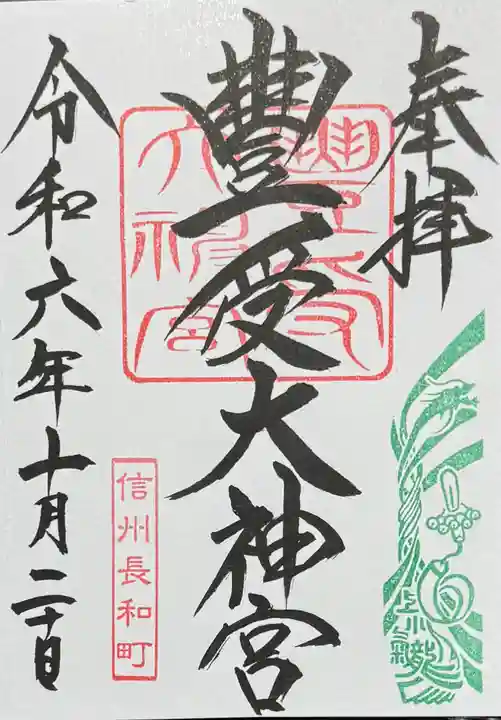 奉拝
豊受大神宮
豊受大神宮
信州長和町
令和六年十月二十日